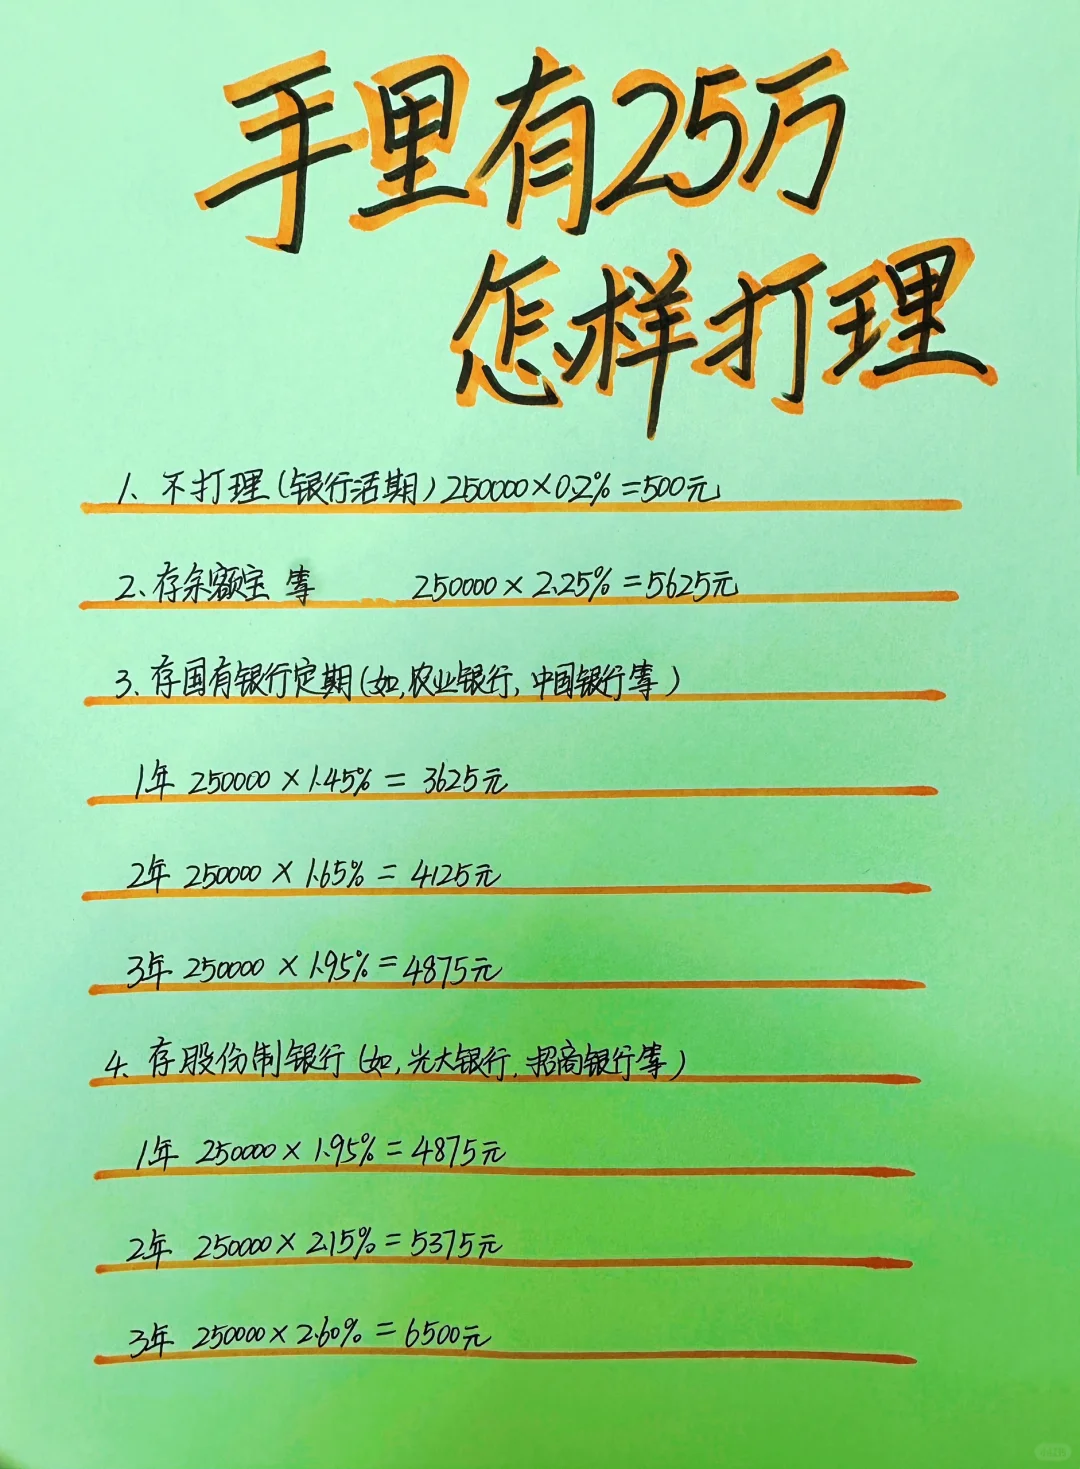 手里有25万
怎样打理
1、不打理(银行活期)250000×0.2%=500元
2、存余额宝 等 250000×2.25%=5625元
3、存国有银行定期(如,农业银行,中国银行等)
1年 250000×1.45%= 3625元
2年 250000×1.65%= 4125元
3年 250000×1.95%=4875元
4、存股份制银行(如,光大银行,招商银行等)
1年 250000×1.95%=4875元
2年 250000×2.15%=5375元
3年 250000×2.60%=6500元